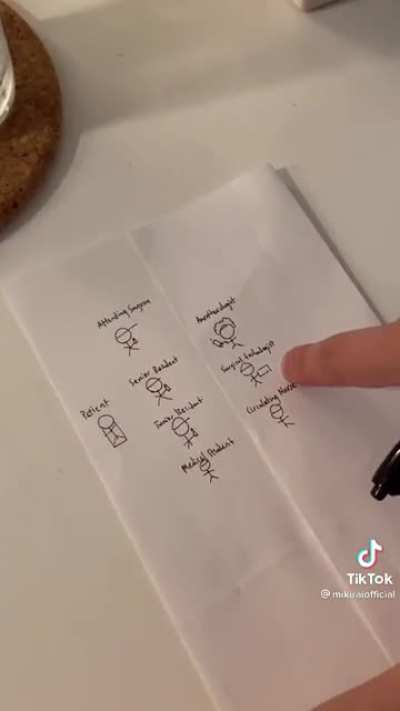 Attending Surgeon
Anesthesiologist
Senior Resident
Surgical Technologist
Patient
Junior Resident
Circulating Nurse
Medical Student
TikTok
@mikiraiofficial